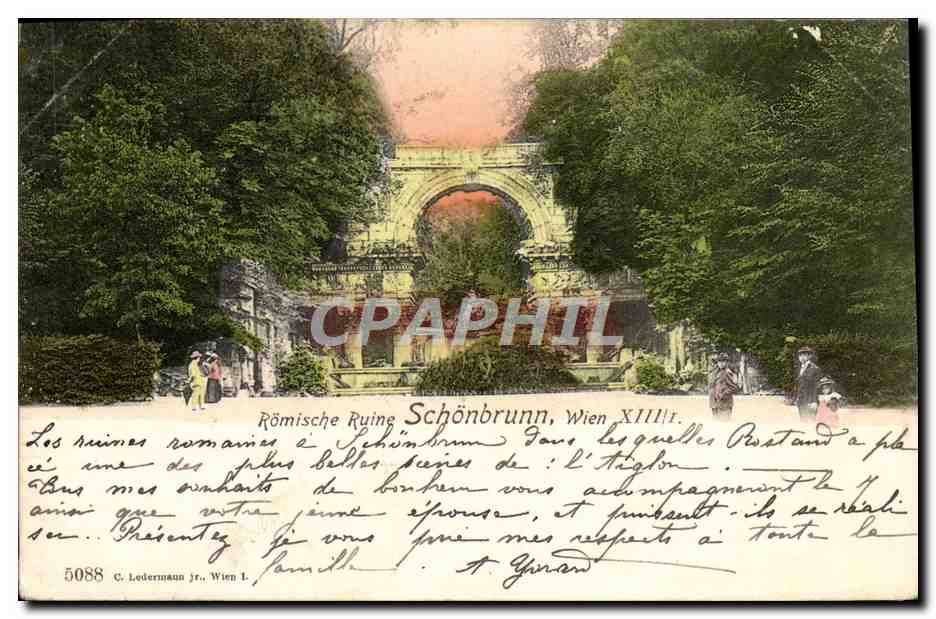 CPAPHIL
Römische Ruine Schönbrunn, Wien XIII/1.
Les ruines romaines à Schönbrunn dans lesquelles Rostand a pla
cé une des plus belles scènes de : l'Aiglon. —
Tous mes souhaits de bonheur vous accompagneront le 7
ainsi que votre jeune épouse, et puissent-ils se réali
ser. Présentez je vous prie mes respects à toute la
famille. A
5088 C. Ledermann jr., Wien 1.